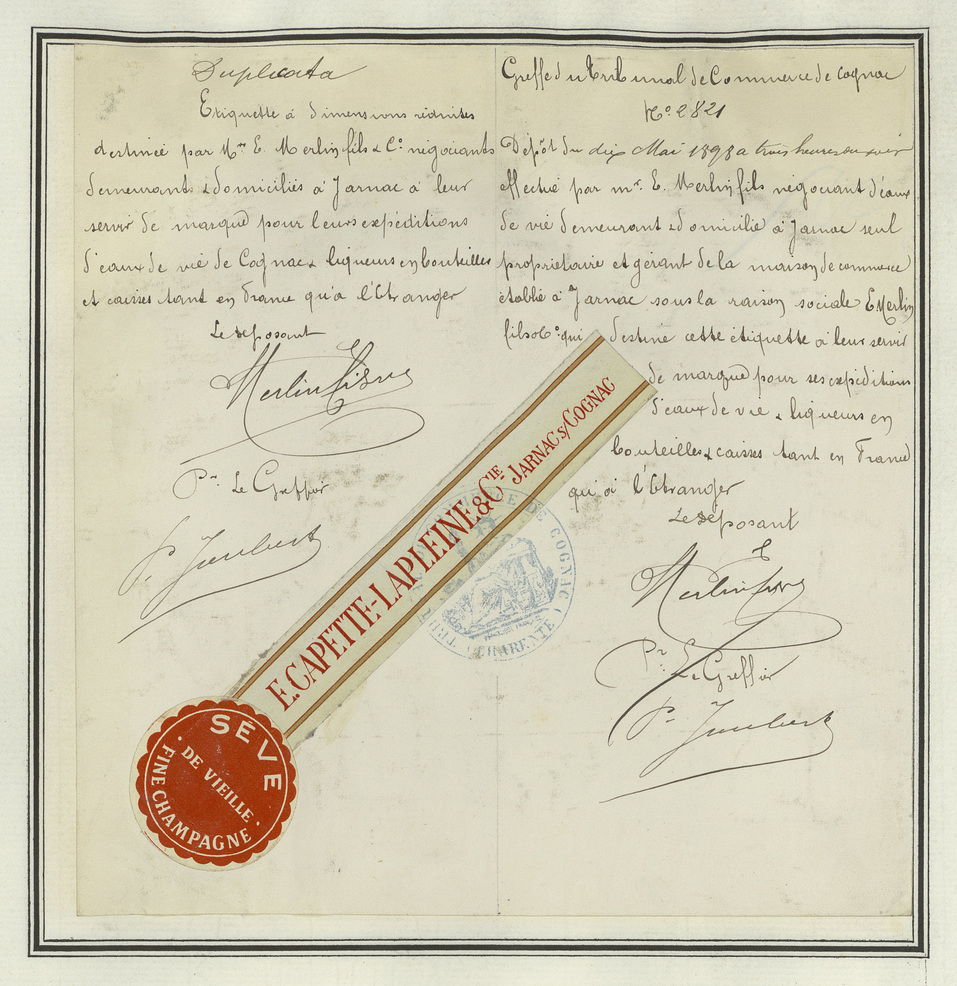 Duplicata
Etiquette à dimensions réduites
destinée par Mrs E. Merlin fils & Co négociants
demeurants & domiciliés à Jarnac à leur
servir de marque pour leurs expéditions
d'eaux de vie de Cognac & liqueurs en bouteilles
et caisses tant en France qu'à l'Etranger
Le déposant
Merlin Fils
Pr. Le Greffier
P. Joubert
Greffe du Tribunal de Commerce de Cognac
No. 2821
Dépôt du dix Mai 1898 a trois heures du soir
effectué par mr. E. Merlin fils négociant d'eaux
de vie demeurant & domicilié à Jarnac seul
propriétaire et gérant de la maison de commerce
établie à Jarnac sous la raison sociale E Merlin
fils & Co. qui destine cette étiquette à leur servir
de marque pour ses expéditions
d'eaux de vie & liqueurs en
bouteilles & caisses tant en France
qu'à l'Etranger
Le déposant
Merlin fils
Pr. Le Greffier
P. Joubert
E. CAPETTE-LAPLEINE & CIE JARNAC S/ COGNAC
DE COGNAC (CHARENTE)
SÈVE
DE VIEILLE
FINE CHAMPAGNE